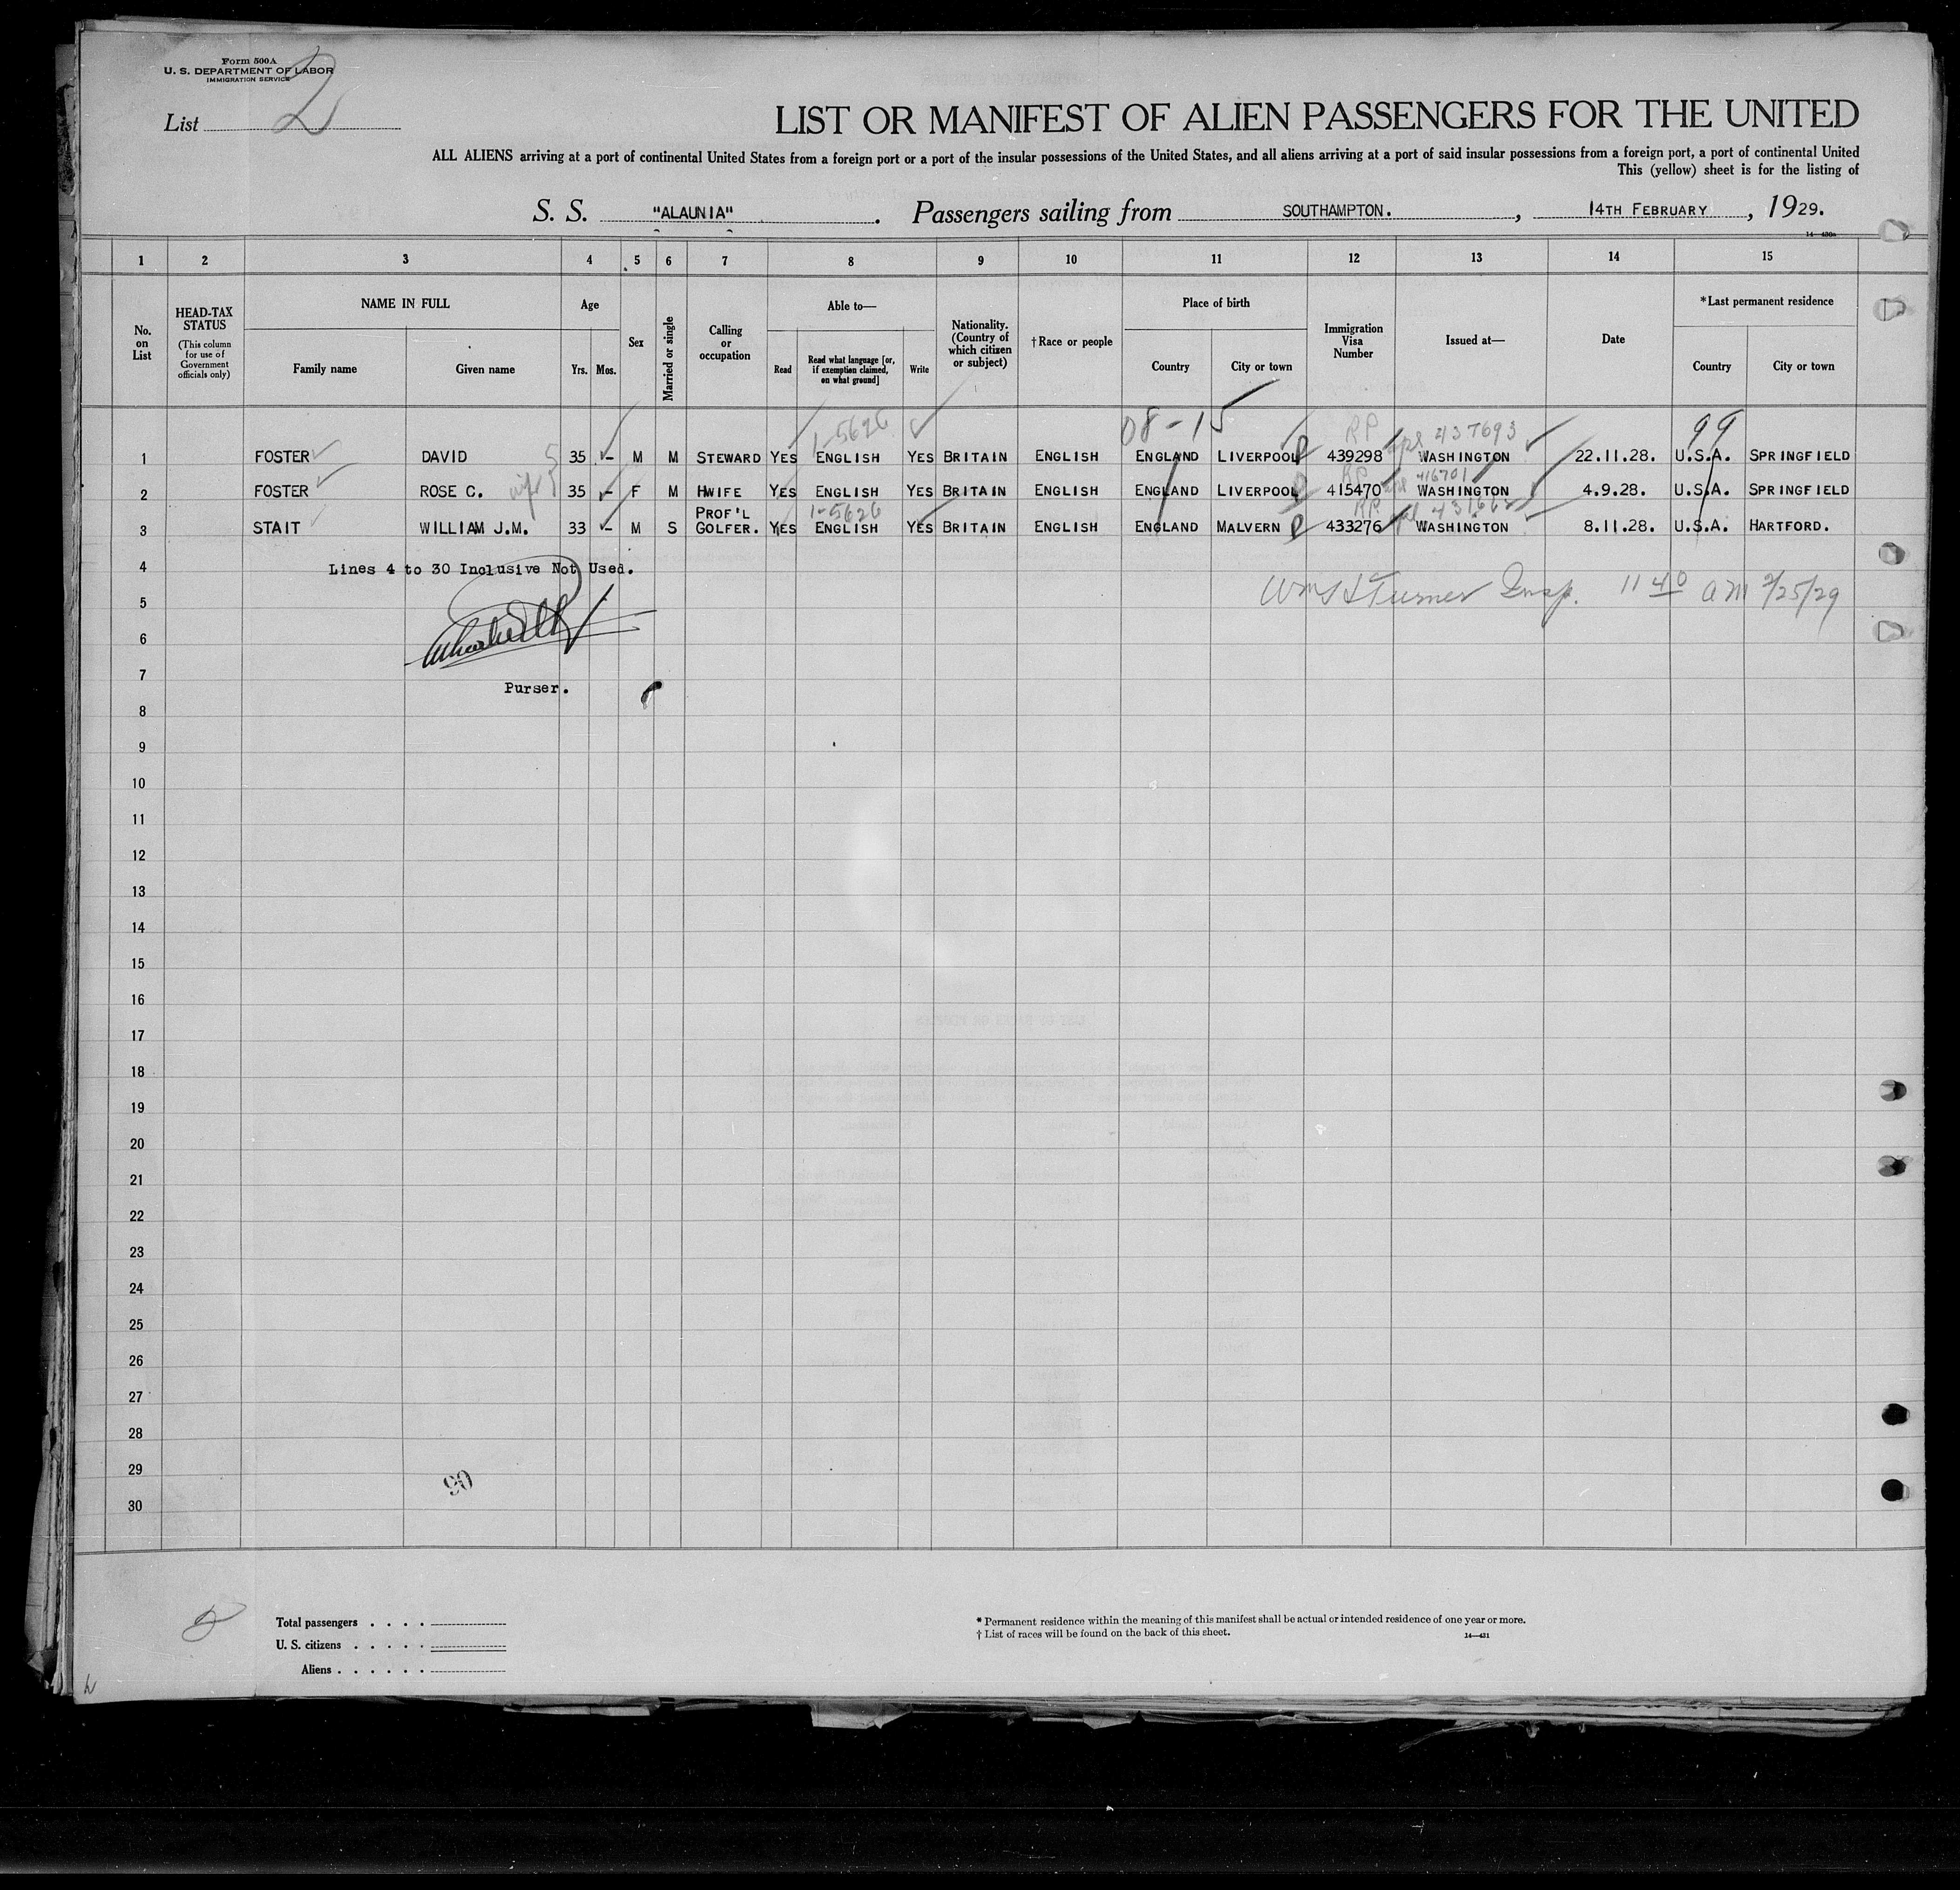 Form 500A
U. S. DEPARTMENT OF LABOR
IMMIGRATION SERVICE
List 2
LIST OR MANIFEST OF ALIEN PASSENGERS FOR THE UNITED
ALL ALIENS arriving at a port of continental United States from a foreign port or a port of the insular possessions of the United States, and all aliens arriving at a port of said insular possessions from a foreign port, a port of continental United
This (yellow) sheet is for the listing of
S. S. "ALAUNIA". Passengers sailing from SOUTHAMPTON., 14TH FEBRUARY, 1929.
1 2 3 4 5 6 7 8 9 10 11 12 13 14 15
No. on List
HEAD-TAX STATUS
(This column for use of Government officials only)
NAME IN FULL
Family name Given name
Age
Yrs. Mos.
Sex
Married or single
Calling or occupation
Able to—
Read
Read what language [or, if exemption claimed, on what ground]
Write
Nationality. (Country of which citizen or subject)
†Race or people
Place of birth
Country City or town
Immigration Visa Number
Issued at—
Date
*Last permanent residence
Country City or town
1-5626 08-15 RP 437693 99
1 FOSTER DAVID 35 – M M STEWARD YES ENGLISH YES BRITAIN ENGLISH ENGLAND LIVERPOOL 439298 WASHINGTON 22.11.28. U.S.A. SPRINGFIELD
wife RP 416701
2 FOSTER ROSE C. 35 – F M HWIFE YES ENGLISH YES BRITAIN ENGLISH ENGLAND LIVERPOOL 415470 WASHINGTON 4.9.28. U.S.A. SPRINGFIELD
1-5626 RP
3 STAIT WILLIAM J.M. 33 – M S PROF'L GOLFER. YES ENGLISH YES BRITAIN ENGLISH ENGLAND MALVERN 433276 WASHINGTON 8.11.28. U.S.A. HARTFORD.
4 Lines 4 to 30 Inclusive Not Used.
Turner Insp. 11 40 am 2/25/29
5
6
7
Purser.
8
9
10
11
12
13
14
15
16
17
18
19
20
21
22
23
24
25
26
27
28
29
90
30
Total passengers . . . .
U. S. citizens . . . . .
Aliens . . . . . .
* Permanent residence within the meaning of this manifest shall be actual or intended residence of one year or more.
† List of races will be found on the back of this sheet.
14—431